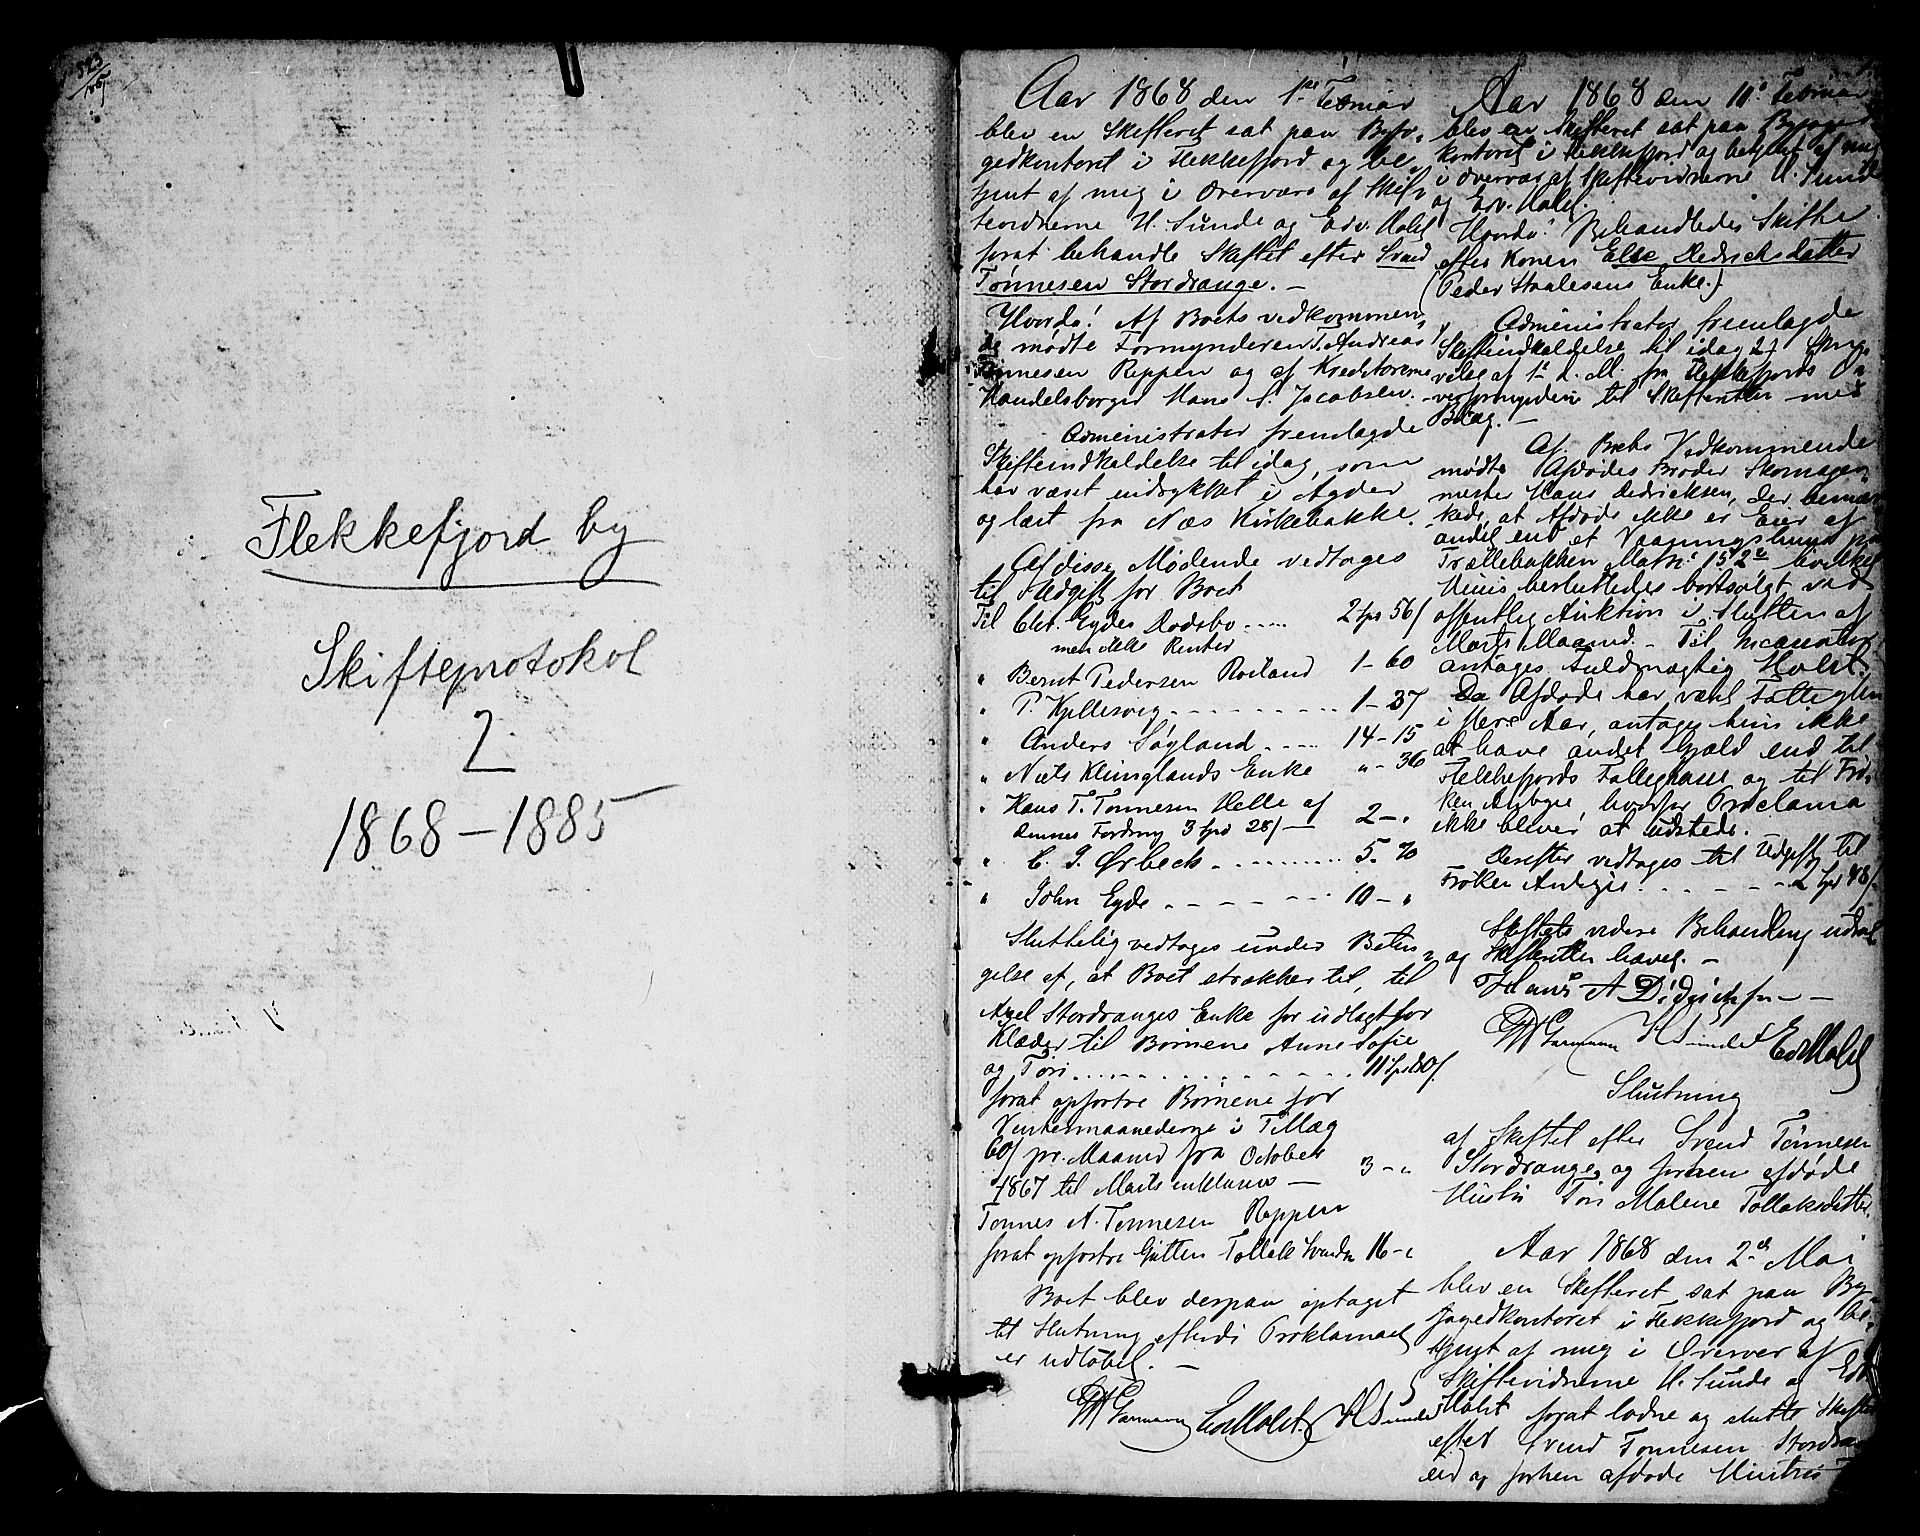 Flekkefjord by
Skifteprotokol
2
1868-1885
Aar 1868 den 1ste Februar
blev en Skifteret sat paa Byfo-
gedkontoret i Flekkefjord og be-
tjent af mig i Overvær af Skif-
tevidnerne H. Sunde og Edv. Holst
forat behandle Skiftet efter Svend
Tønnesen Stordrange. -
Hvorda! Af Boets vedkommen-
de mødte Formynderen T. Andreas
Tønnesen Reppen og af Kreditorerne
Handelsborger Hans S. Jacobsen. -
Administrator fremlagde
Skifteindkaldelse til idag, som
har været indrykket i Agder
og læst fra Næs Kirkebakke.
Af disse Mødende vedtages
til Udgift for Boet
Til Chr. Egdes Dødsbo ..... 2 spd 56/
men ikke Renter
" Bernt Pedersen Roiland 1-60
" P. Kjellesvig ......... 1-37
" Anders Søyland .... 14-15
" Niels Klunglands Enke "-36
" Hans T. Tønnesen Helle af
Ommes Fordring 3 spd 28/ — 2-"
" C. J. Ørbeck .......... 5-70
" John Egde ........ 10-"
Sluttelig vedtages under Betin-
gelse af, at Boet strækker til, til
Axel Stordranges Enke for udlagt for
Klæder til Børnene Anne Sofie
og Tøri ............... 11 spd 80/.
forat opfostre Børnene for
Vintermaanederne i Tillæg
60/ pr. Maaned fra October
1867 til Marts inklusive — 3-"
Tønnes A. Tønnesen Reppen
forat opfostre Gutten Tollak Svends. 16-"
Boet blev derpaa optaget
til Slutning efterdi Proklamaet
er udløbet. -
Garmann Edv Holst. H Sunde
Aar 1868 den 10de Februar
blev en Skifteret sat paa Byfoged
kontoret i Flekkefjord og betjent af mig
i Overvær af Skiftevidnerne H. Sunde
og Edv. Holst.
Hvorda! Behandledes Skifte
efter Konen Else Dedricksdatter
(Peder Staalesens Enke.)
Administrator fremlagde
Skifteindkaldelse til idag 2) Skri-
velse af 1ste d. M. fra Flekkefjords O-
verformynderi til Skifteretten med
Bilag. -
Af Boets Vedkommende
mødte Afdødes Broder Skomager-
mester Hans Dedricksen, der bemær-
kede, at Afdøde ikke er Eier af
andet end et Vaaningshuus paa
Trællebakken Matr: 152b hvilket
Huus besluttedes bortsolgt ved
offentlig Auktion i Slutten af
Marts Maaned. - Til Incassator
antages Fuldmægtig Holst.
Da Afdøde har været Fattiglem
i flere Aar, antages hun ikke
at have andet Gjæld end til
Flekkefjords Fattigkasse og til Frø-
ken Anbye, hvorfor Proclama
ikke bliver at udstede.
Derefter vedtages til Udgift til
Frøken Anbye ....... 2 spd 48/.
Skiftets videre Behandling udsat
og Skifteretten hævet. -
Hans A Didrichsen - -
Garmann H Sunde Edv Holst
Slutning
af Skiftet efter Svend Tønnesen
Stordrange, og forhen afdøde
Hustru Tøri Malene Tollaksdatter.
Aar 1868 den 2den Mai
blev en Skifteret sat paa By-
fogedkontoret i Flekkefjord og be-
tjent af mig i Overvær af
Skiftevidnerne H. Sunde og Edv.
Holst forat lodne og slutte Skiftet
efter Svend Tønnesen Stordran-
ge og forhen afdøde Hustru